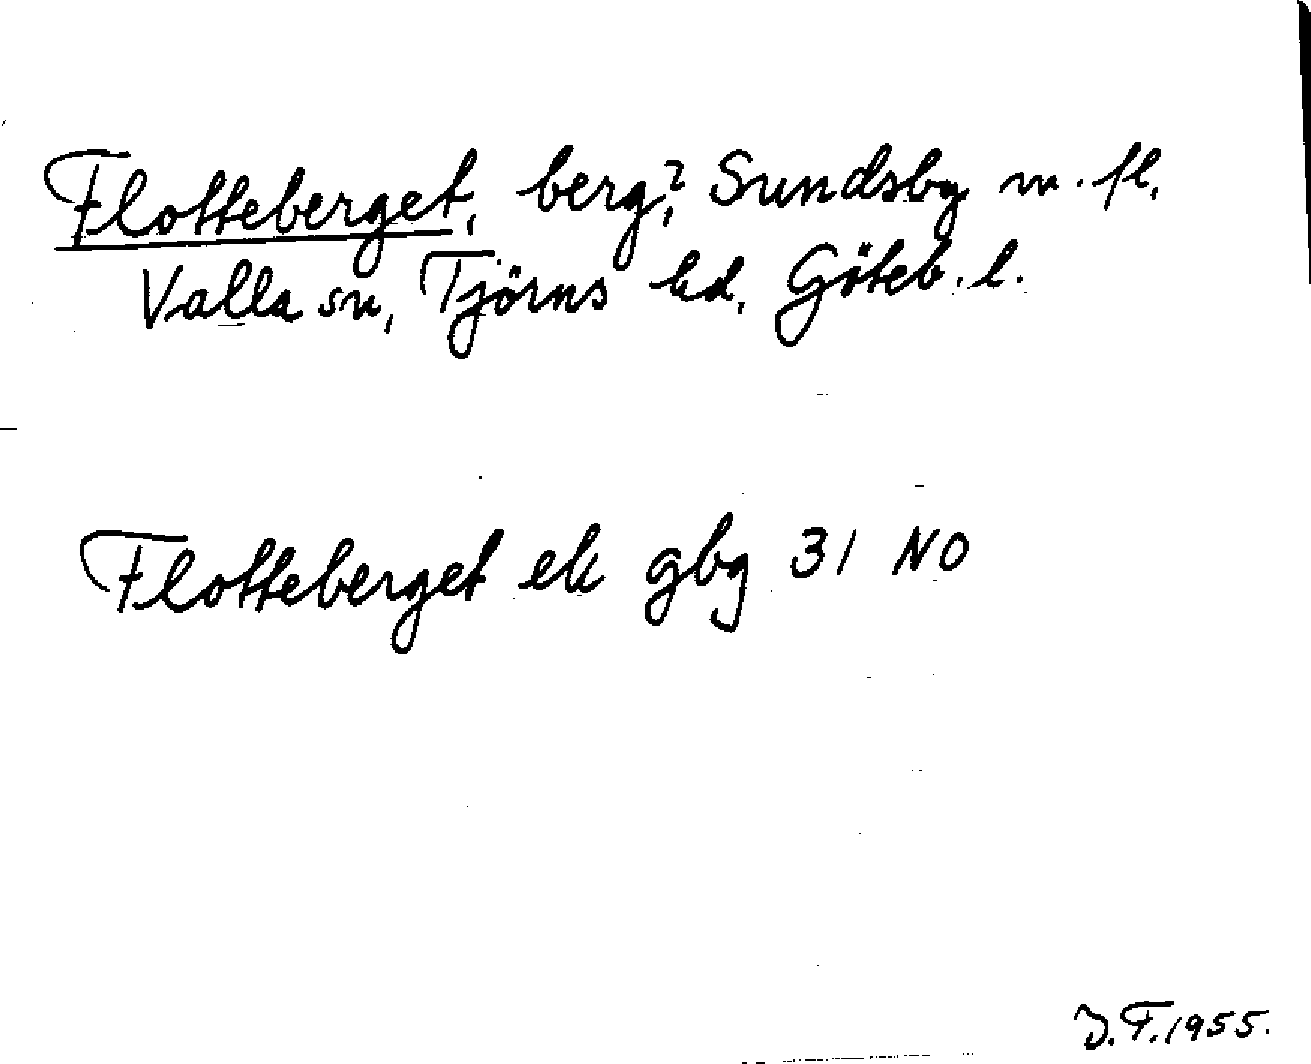 Flotteberget, berg?, Sundsby m. fl.
Valla sn, Tjörns hd, Göteb. l.
Flotteberget ek gbg 31 NO
J.F.1955.